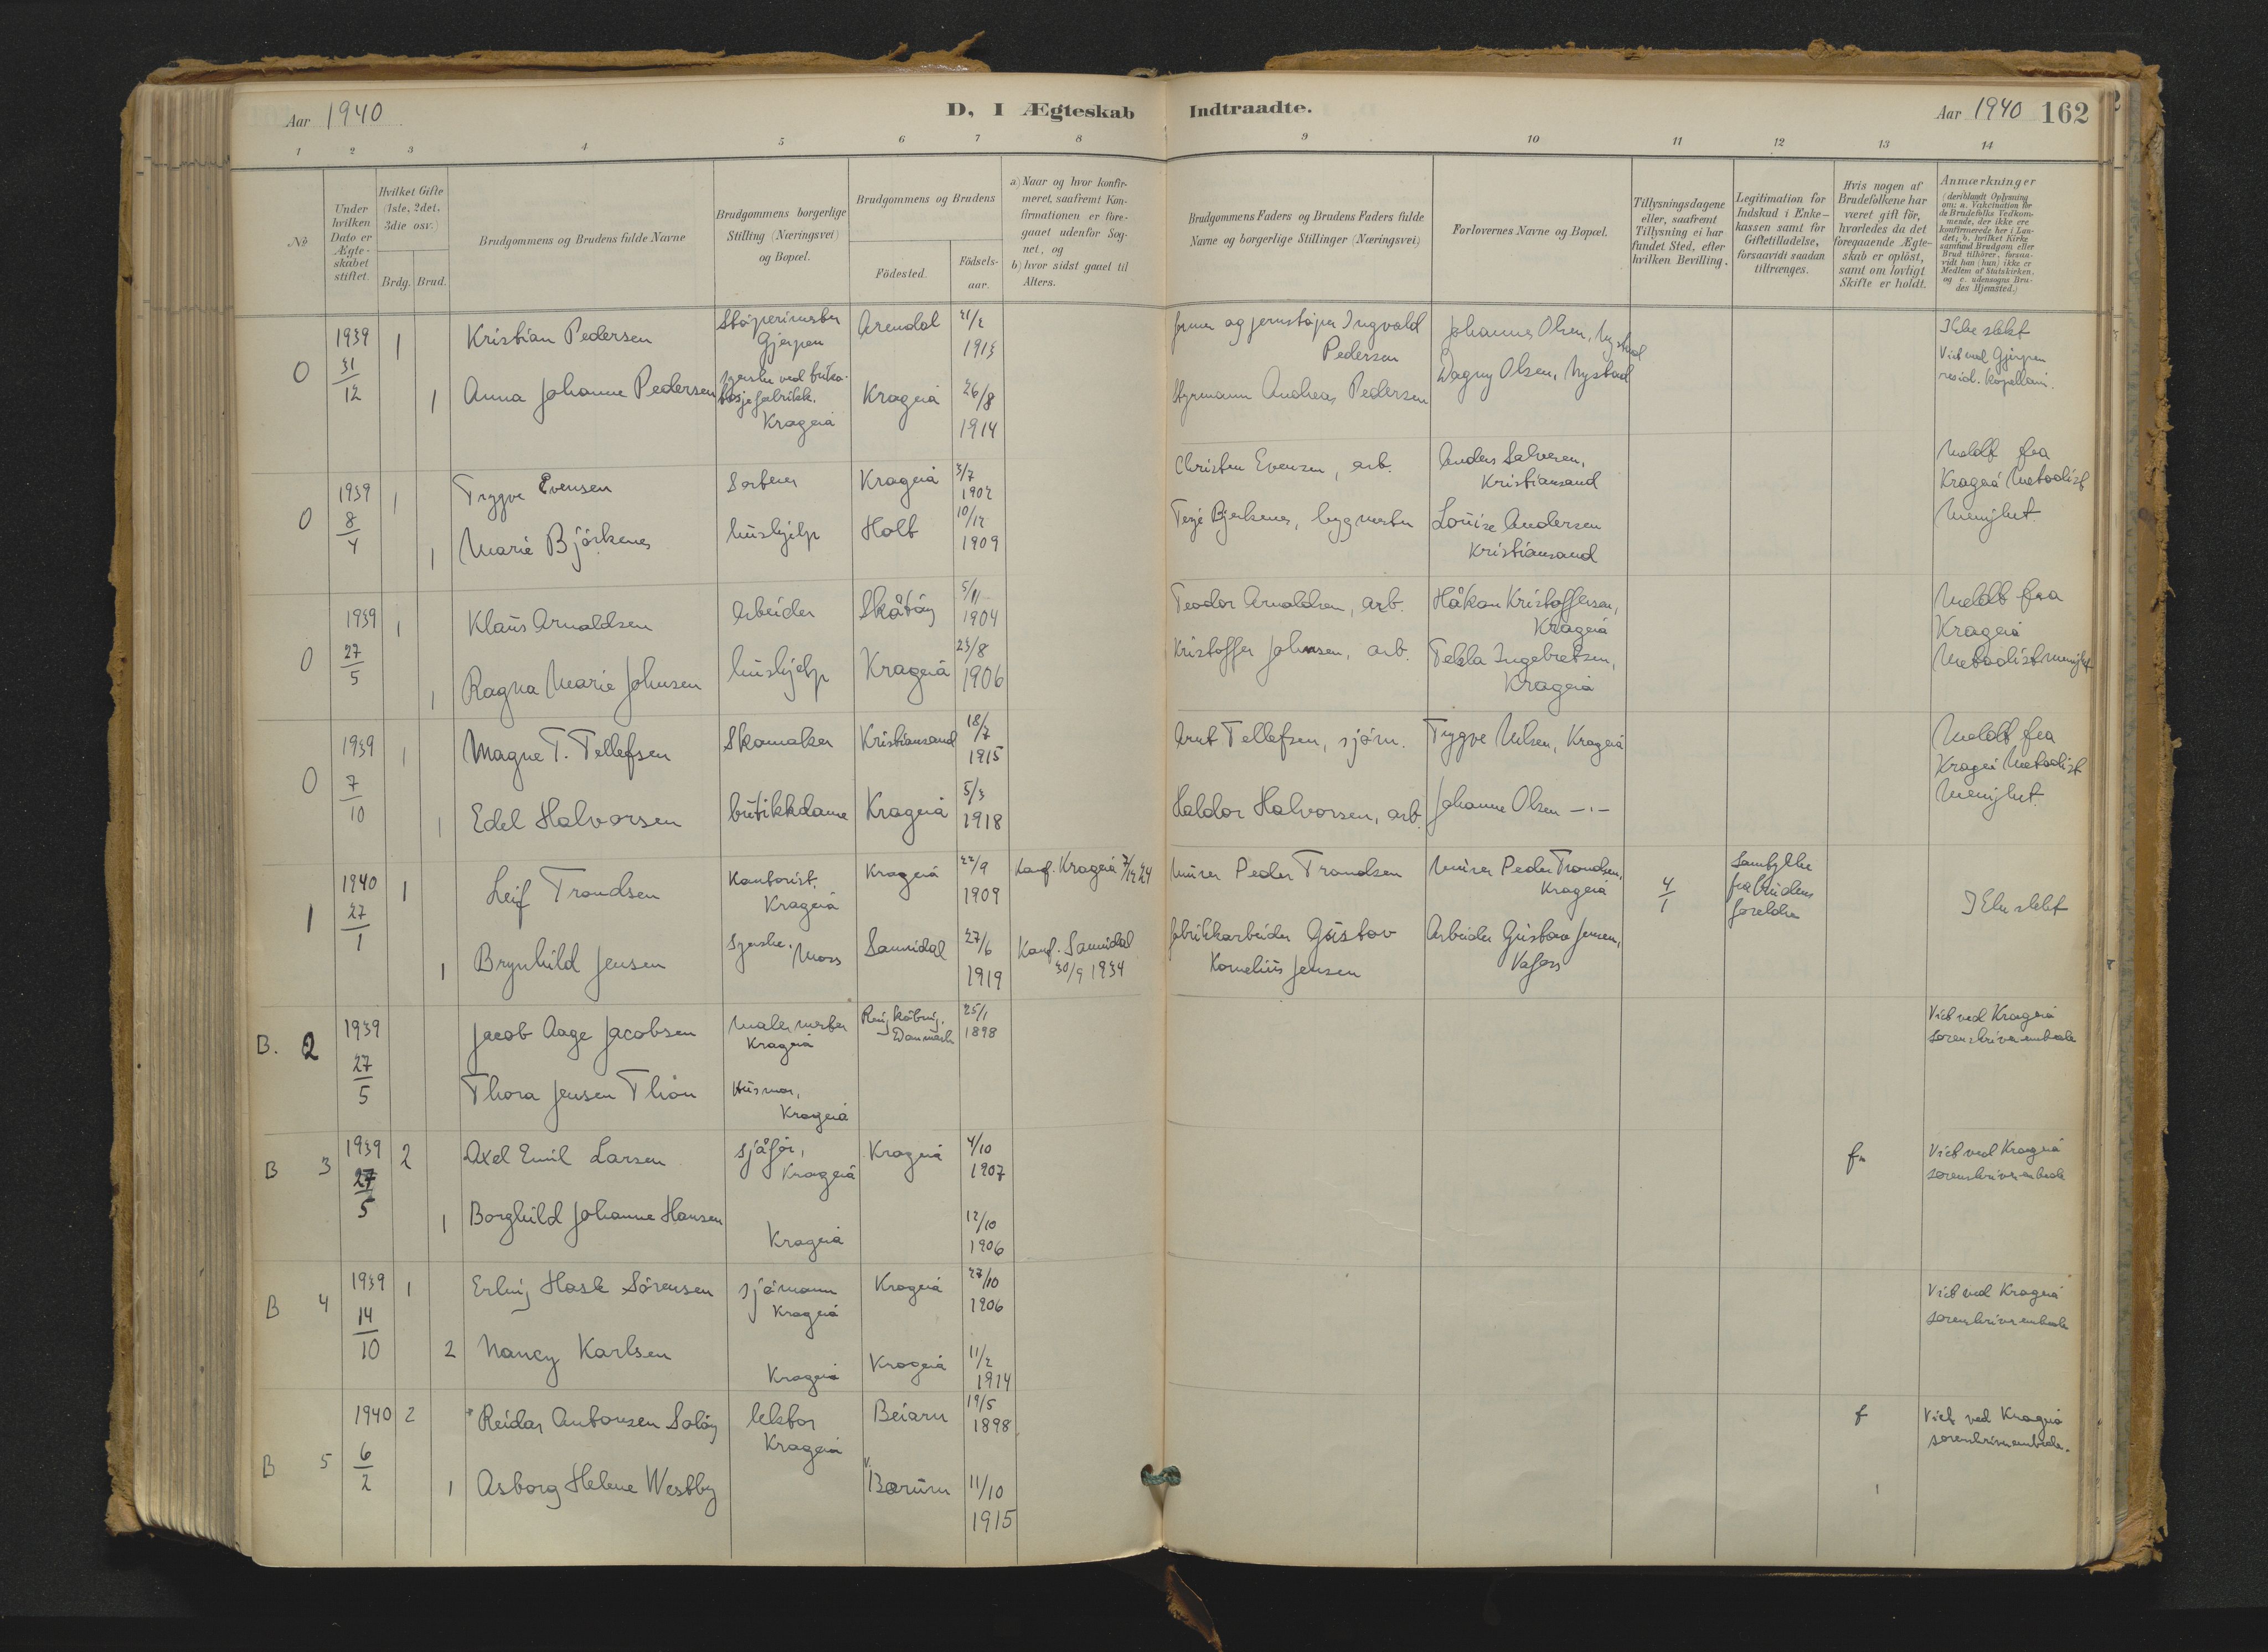 Aar 1940
D, I Ægteskab Indtraadte.
Aar 1940 162
1 2 3 4 5 6 7 8 9 10 11 12 13 14
No
Under hvilken Dato er Ægteskabet stiftet.
Hvilket Gifte (1ste, 2det, 3die osv.)
Brdg. Brud.
Brudgommens og Brudens fulde Navne
Brudgommens borgerlige Stilling (Næringsvei) og Bopæl.
Brudgommens og Brudens
Födested.
Födsels-aar.
a) Naar og hvor konfirmeret, saafremt Konfirmationen er foregaaet udenfor Sognet, og
b) hvor sidst gaaet til Alters.
Brudgommens Faders og Brudens Faders fulde Navne og borgerlige Stillinger (Næringsvei)
Forlovernes Navne og Bopæl.
Tillysningsdagene eller, saafremt Tillysning ei har fundet Sted, efter hvilken Bevilling.
Legitimation for Indskud i Enkekassen samt for Giftetilladelse, forsaavidt saadan tiltrænges.
Hvis nogen af Brudefolkene har været gift för, hvorledes da det foregaaende Ægteskab er oplöst, samt om lovligt Skifte er holdt.
Anmærkninger
(deriblandt Oplysning om: a. Vakcination for de Brudefolks Vedkommende, der ikke ere konfirmerede her i Landet; b. hvilket Kirkesamfund Brudgom eller Brud tilhörer, forsaavidt han (hun) ikke er Medlem af Statskirken, og c. udensogns Brudes Hjemsted.)
0 1939 31/12 1 Kristian Pedersen Støperimester Gjerpen Arendal 21/2 1913
Pedersen
Johannes Olsen, Nystad
Ikke slekt
Viet ved Gjerpen
resid. kapellani.
1 Anna Johanne Pedersen
Kragerø
Kragerø 26/8 1914
Styrmann Andreas Pedersen
Dagny Olsen, Nystad
0 1939 8/4 1 Trygve Evensen
Kragerø 3/7 1902
Christen Evensen, arb.
Anders Salvesen,
Kristiansand
Meldt fra
Kragerø Metodist
Menighet.
1 Marie Björkenes hushjelp Holt 10/12 1909
Terje Bjerkenes, bygmester
Louise Andersen
Kristiansand
0 1939 27/5 1 Klaus Arnoldsen Arbeider Skåtøy 5/11 1904
Teodor Arnoldsen, arb.
Håkon Kristoffersen,
Kragerø
Meldt fra
Kragerø
Metodistmenighet
1 Ragna Marie Johnsen hushjelp Kragerø 23/8 1906
Kristoffer Johnsen, arb.
Tekla Ingebretsen,
Kragerø
0 1939 7/10 1 Magne T. Tellefsen Skomaker Kristiansand 18/7 1915
Arnt Tellefsen, sjøm.
Trygve Nilsen, Kragerø
Meldt fra
Kragerø Metodist
Menighet.
1 Edel Halvorsen butikkdame Kragerø 5/3 1918
Haldor Halvorsen, arb.
Johanne Olsen —„—
1 1940 27/1 1 Leif Trondsen Kontorist. Kragerø Kragerø 22/9 1909
Konf. Kragerø 7/12 24
Murer Peder Trondsen
Murer Peder Trondsen,
Kragerø
4/1
Samtykke
fra brudens
foreldre
Ikke slekt
1 Brynhild Jensen Syerske. Moss Sannidal 27/6 1919
Konf. Sannidal
30/9 1934
fabrikkarbeider Gustav
Kornelius Jensen
Arbeider Gustav Jensen,
Vafoss
B. 2 1939 27/5 Jacob Aage Jacobsen Malermester Kragerø Ringkøbing. Danmark 25/1 1898
Viet ved Kragerø
sorenskriverembede
Thora Jensen Thon Husmor, Kragerø
B 3 1939 27/5 2 Axel Emil Larsen sjåfør, Kragerø Kragerø 4/10 1907
Viet ved Kragerø
sorenskriverembede
1 Borghild Johanne Hansen Kragerø 12/10 1906
B 4 1939 14/10 1 Erling Hasle Sörensen sjømann Kragerø Kragerø 27/10 1906
Viet ved Kragerø
sorenskriverembede
2 Nancy Karlsen Kragerø Kragerø 11/2 1914
B 5 1940 6/2 2 Reidar Antonsen Soløy lektor Kragerø Beiarn 19/5 1898
f
Viet ved Kragerø
sorenskriverembede.
1 Asborg Helene Westby V. Bærum 11/10 1915